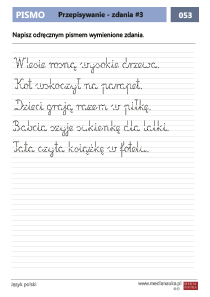 PISMO
Przepisywanie - zdania #3
053
Napisz odręcznym pismem wymienione zdania.
W lesie rosną wysokie drzewa.
Kot wskoczył na parapet.
Dzieci grają razem w piłkę.
Babcia szyje sukienkę dla lalki.
Tata czyta książkę w fotelu.
Język polski
www.medianauka.pl